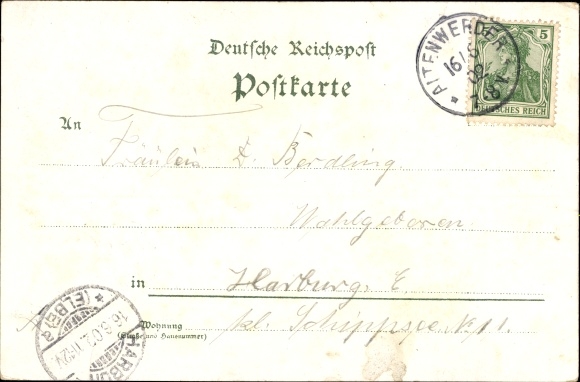 Deutsche Reichspost
Postkarte
ALTENWERDER
16
5
DEUTSCHES REICH
An
Fräulein
Wohlgeboren
in Harburg. E.
Wohnung
(Straße und Hausnummer)
kl. Schippsee
HARBURG
(ELBE)
16.5.02